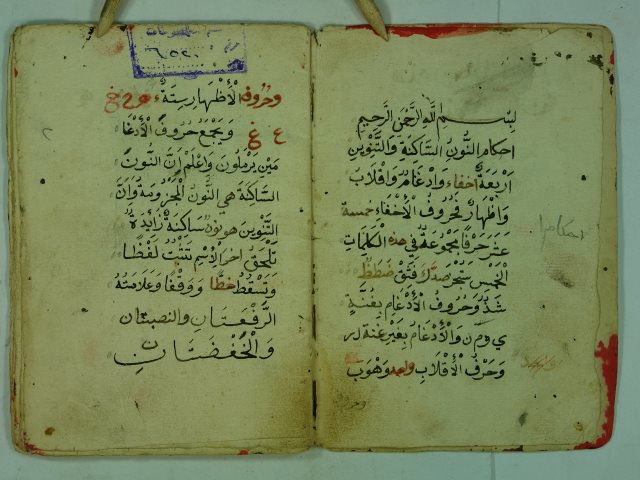 بسم الله الرحمن الرحيم
احكام النون الساكنة والتنوين
اربعة اخفاء وادغام واقلاب
واظهار فحروف الاخفاء خمسة
عشر حرفا مجموعة في هذه الكلمات
الخمس
شذ وحروف الادغام بغنة
ي وم ن والادغام بغير غنة ل ر
وحرف الاقلاب واحد وهو ب
احكام
وحروف الاظهار ستة ء ه ح خ
ع غ ويجمع حروف الادغا
مين يرملون واعلم ان النون
الساكنة هي النون المجزومة وان
التنوين هو نون ساكنة زايدة
تلحق اخر الاسم تثبت لفظا
وتسقط خطا ووقفا وعلامته
الرفعتان والنصبتان
والخفضتان